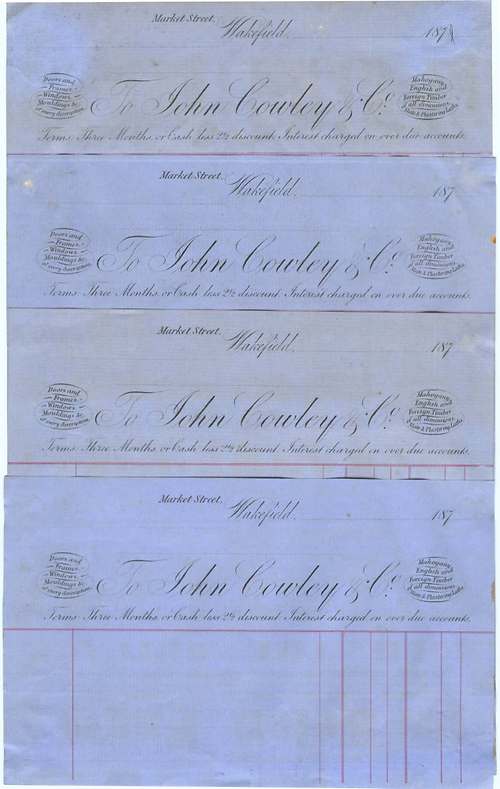 Market Street.
Wakefield. 187
Doors and
Frames
Windows
Mouldings &c
of every description.
To John Cowley & Co
Mahogany
English and
Foreign Timber
of all dimensions
Slate & Plastering Laths
Terms Three Months, or Cash less 2½ discount. Interest charged on over due accounts.
Market Street.
Wakefield. 187
Doors and
Frames
Windows
Mouldings &c
of every description.
To John Cowley & Co
Mahogany
English and
Foreign Timber
of all dimensions
Slate & Plastering Laths
Terms Three Months, or Cash less 2½ discount. Interest charged on over due accounts.
Market Street.
Wakefield. 187
Doors and
Frames
Windows
Mouldings &c
of every description.
To John Cowley & Co
Mahogany
English and
Foreign Timber
of all dimensions
Slate & Plastering Laths
Terms Three Months, or Cash less 2½ discount. Interest charged on over due accounts.
Market Street.
Wakefield. 187
Doors and
Frames
Windows
Mouldings &c
of every description.
To John Cowley & Co
Mahogany
English and
Foreign Timber
of all dimensions
Slate & Plastering Laths
Terms Three Months, or Cash less 2½ discount. Interest charged on over due accounts.